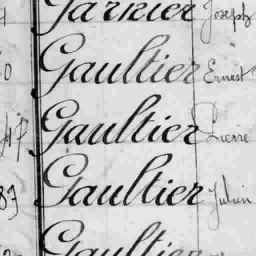 Garnier Joseph
0 Gaultier Ernest
47 Gaultier Pierre
87 Gaultier Julien
Gaultier